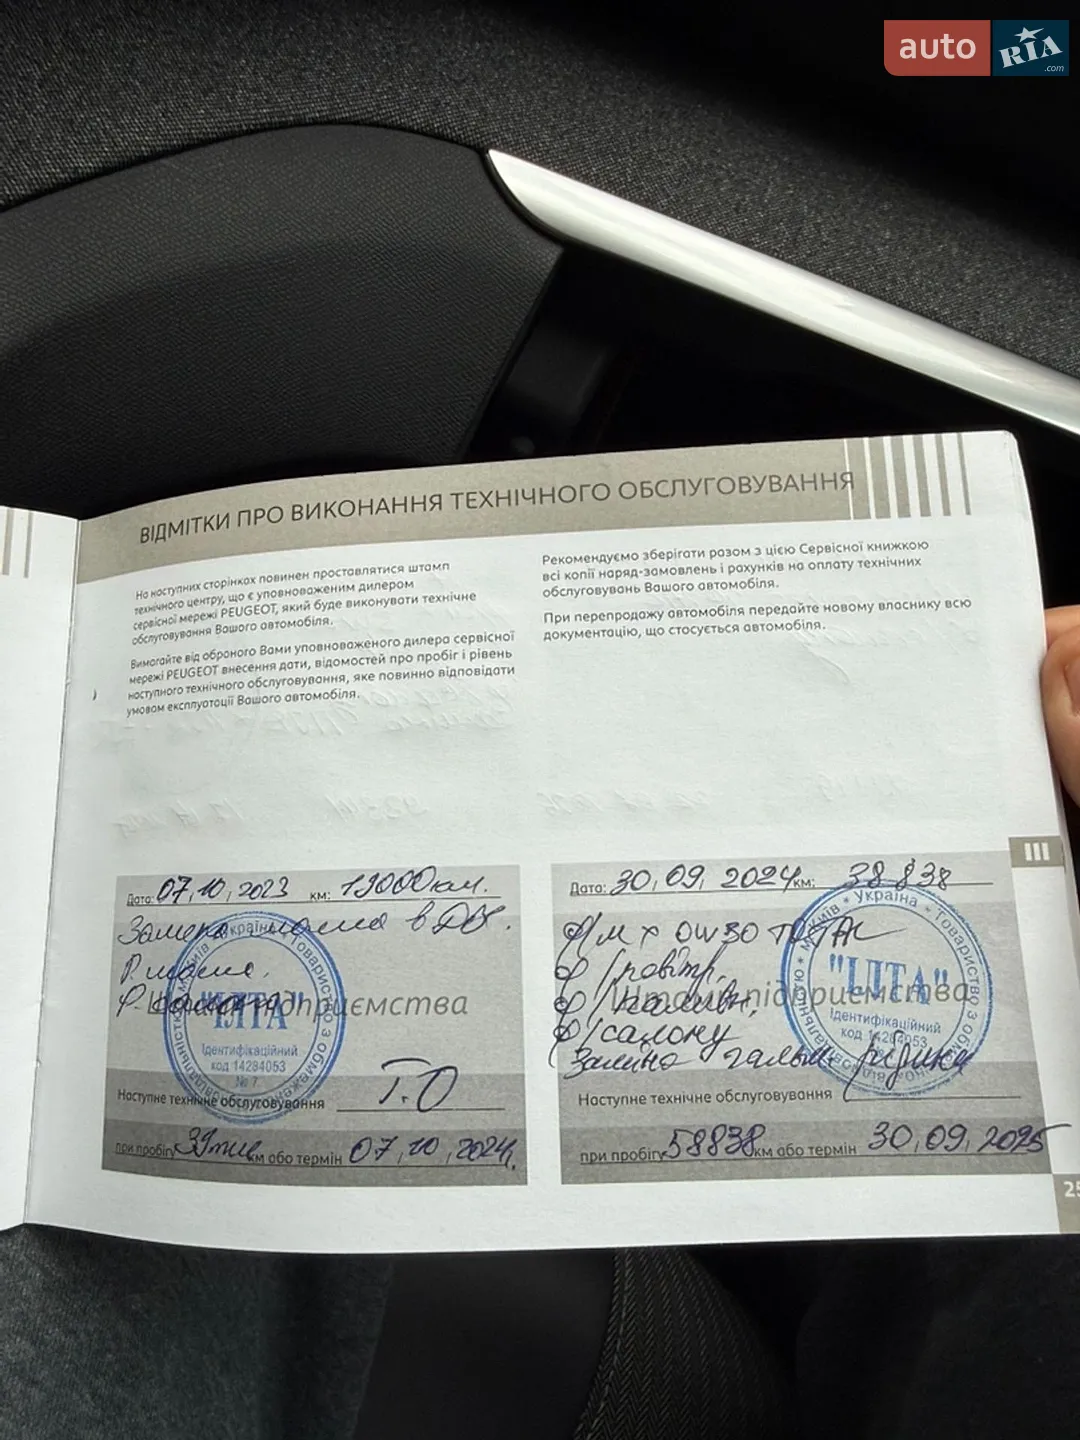 auto RIA.com
ВІДМІТКИ ПРО ВИКОНАННЯ ТЕХНІЧНОГО ОБСЛУГОВУВАННЯ
На наступних сторінках повинен проставлятися штамп
технічного центру, що є уповноваженим дилером
сервісної мережі PEUGEOT, який буде виконувати технічне
обслуговування Вашого автомобіля.
Вимагайте від обраного Вами уповноваженого дилера сервісної
мережі PEUGEOT внесення дати, відомостей про пробіг і рівень
наступного технічного обслуговування, яке повинно відповідати
умовам експлуатації Вашого автомобіля.
Рекомендуємо зберігати разом з цією Сервісної книжкою
всі копії наряд-замовлень і рахунків на оплату технічних
обслуговувань Вашого автомобіля.
При перепродажу автомобіля передайте новому власнику всю
документацію, що стосується автомобіля.
III
Дата: 07,10,2023 км: 19000 км.
Заміна масла в ДВ
Ф. масла.
Ф.
Штамп підприємства
"ІЛТА"
Ідентифікаційний
код 14284053
№ 7
Україна * Товариство з обмеженою відповідальністю
Наступне технічне обслуговування Т.О
при пробігу 39 тис км або термін 07,10,2024.
Дата: 30,09,2024 км: 38838
ф/м х 0W30 TOTAL
ф/повітр.
ф/палив.
ф/салону
Заміна гальм рідини
Штамп підприємства
"ІЛТА"
Ідентифікаційний
код 14284053
м. Київ * Україна * Товариство з обмеженою відповідальністю
Наступне технічне обслуговування
при пробігу 58838 км або термін 30,09,2025